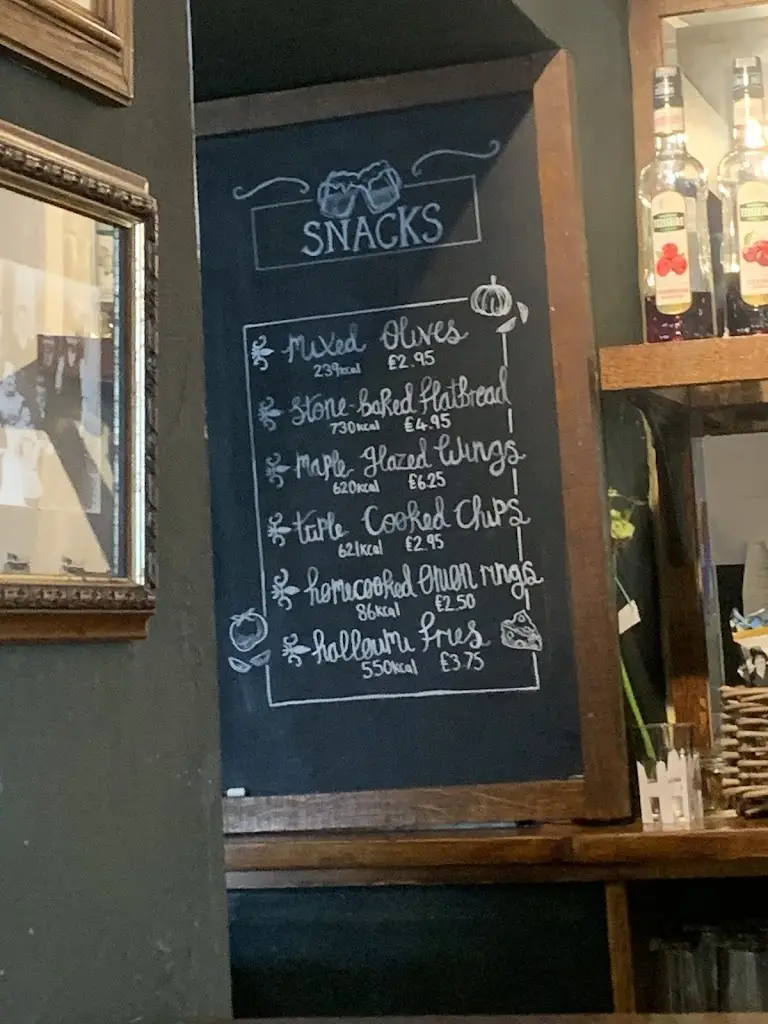 SNACKS
Mixed Olives
239kcal £2.95
Stone-Baked Flatbread
730kcal £4.95
Maple Glazed Wings
620kcal £6.25
triple Cooked Chips
621kcal £2.95
homecooked Onion rings
86kcal £2.50
halloumi fries
550kcal £3.75
TEISSEIRE